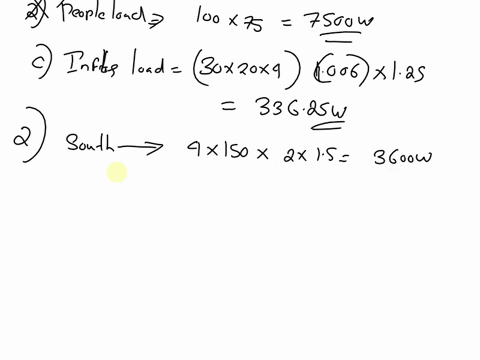 People load ⇒ 100 × 75 = 7500W
c) load = (30×20×4) (1.006) × 1.25
= 336.25W
2) South → 4 × 150 × 2 × 1.5 = 3600W